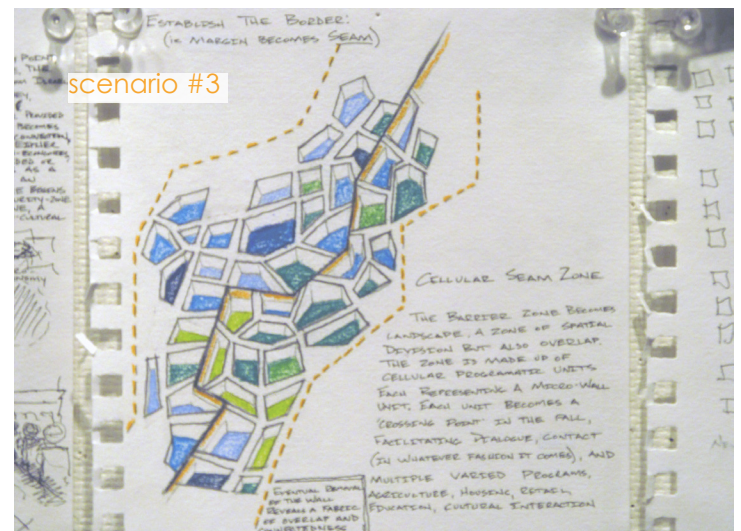 ESTABLISH THE BORDER:
(ie MARGIN BECOMES SEAM)
scenario #3
POINT,
THE
BECOMES
CONNECTION,
AS A
AN
BEGINS
A
CULTURAL
CELLULAR SEAM ZONE
THE BARRIER ZONE BECOMES
LANDSCAPE, A ZONE OF SPATIAL
DIVISION BUT ALSO OVERLAP.
THE ZONE IS MADE UP OF
CELLULAR PROGRAMATIC UNITS
EACH REPRESENTING A MICRO-WALL
UNIT. EACH UNIT BECOMES A
'CROSSING POINT' IN THE FALL,
FACILITATING DIALOGUE, CONTACT
(IN WHATEVER FASHION IT COMES), AND
MULTIPLE VARIED PROGRAMS,
AGRICULTURE, HOUSING, RETAIL,
EDUCATION, CULTURAL INTERACTION
EVENTUAL REMOVAL
OF THE WALL
REVEALS A FABRIC
OF OVERLAP AND
CONNECTEDNESS